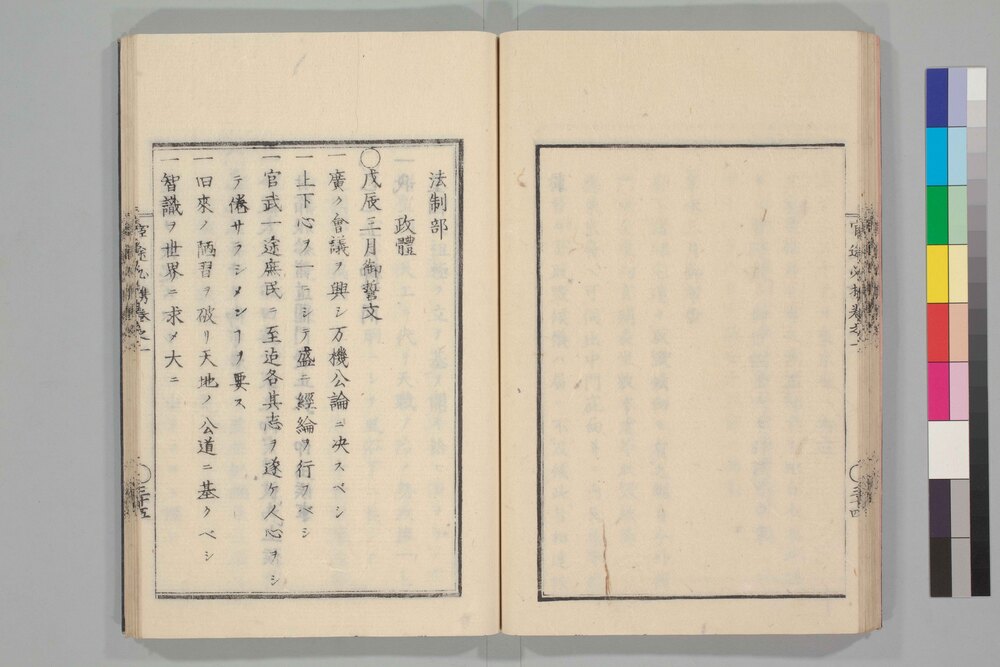 法制部
政體
○戊辰三月御誓文
一廣ク會議ヲ興シ万機公論ニ决スベシ
一上下心ヲ一ニシテ盛ニ經綸ヲ行フベシ
一官武一途庶民ニ至迠各其志ヲ遂ケ人心ヲシ
テ倦サラシメンヿヲ要ス
一旧來ノ陋習ヲ破リ天地ノ公道ニ基クベシ
一智識ヲ世界ニ求メ大ニ
三十五
三十四